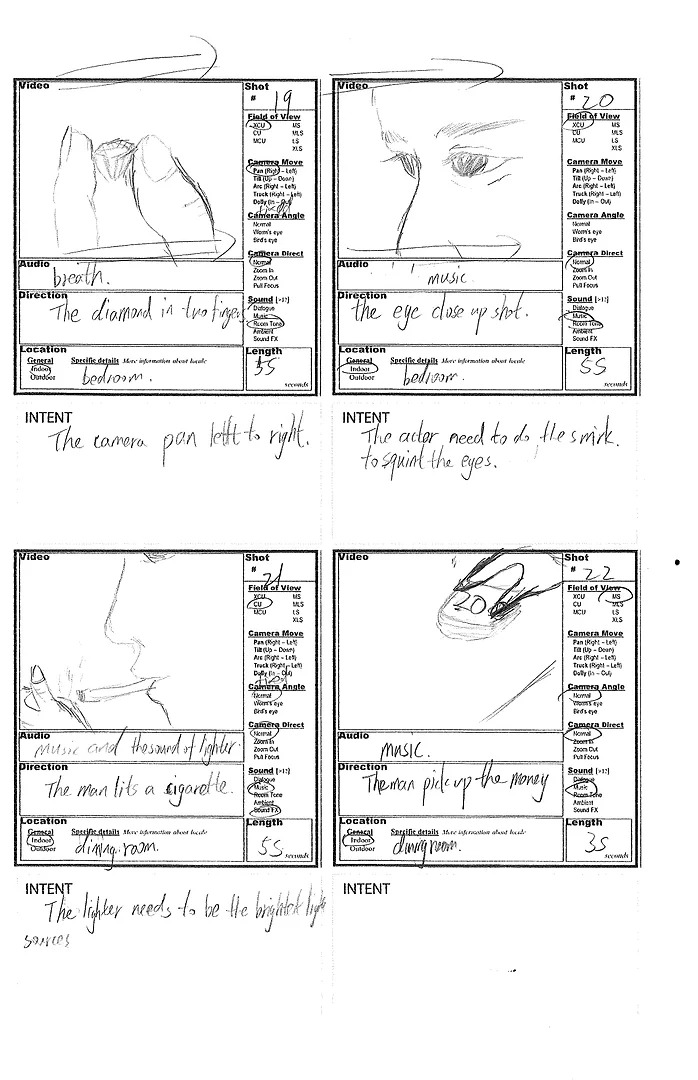 Video
Shot
# 19
Field of View
XCU MS
CU MLS
MCU LS
XLS
Camera Move
Pan (Right – Left)
Tilt (Up – Down)
Arc (Right – Left)
Truck (Right – Left)
Dolly (In – Out)
fixed
Camera Angle
Normal
Worm's eye
Bird's eye
Camera Direct
Normal
Zoom In
Zoom Out
Pull Focus
Audio
breath.
Direction
The diamond in two fingers
Sound [>12]
Dialogue
Music
Room Tone
Ambient
Sound FX
Location
General Specific details More information about locale
Indoor
Outdoor
bedroom.
Length
5S
seconds
INTENT
The camera pan left to right.
Video
Shot
# 20
Field of View
XCU MS
CU MLS
MCU LS
XLS
Camera Move
Pan (Right – Left)
Tilt (Up – Down)
Arc (Right – Left)
Truck (Right – Left)
Dolly (In – Out)
Camera Angle
Normal
Worm's eye
Bird's eye
Camera Direct
Normal
Zoom In
Zoom Out
Pull Focus
Audio
music.
Direction
the eye close up shot.
Sound [>12]
Dialogue
Music
Room Tone
Ambient
Sound FX
Location
General Specific details More information about locale
Indoor
Outdoor
bedroom.
Length
5S
seconds
INTENT
The actor need to do the smirk.
to squint the eyes.
Video
Shot
# 21
Field of View
XCU MS
CU MLS
MCU LS
XLS
Camera Move
Pan (Right – Left)
Tilt (Up – Down)
Arc (Right – Left)
Truck (Right – Left)
Dolly (In – Out)
fixed
Camera Angle
Normal
Worm's eye
Bird's eye
Camera Direct
Normal
Zoom In
Zoom Out
Pull Focus
Audio
music and the sound of lighter.
Direction
The man lits a cigarette.
Sound [>12]
Dialogue
Music
Room Tone
Ambient
Sound FX
Location
General Specific details More information about locale
Indoor
Outdoor
dining room.
Length
5S
seconds
INTENT
The lighter needs to be the brightest light
sources
Video
20
Shot
# 22
Field of View
XCU MS
CU MLS
MCU LS
XLS
Camera Move
Pan (Right – Left)
Tilt (Up – Down)
Arc (Right – Left)
Truck (Right – Left)
Dolly (In – Out)
Camera Angle
Normal
Worm's eye
Bird's eye
Camera Direct
Normal
Zoom In
Zoom Out
Pull Focus
Audio
music.
Direction
The man pick up the money
Sound [>12]
Dialogue
Music
Room Tone
Ambient
Sound FX
Location
General Specific details More information about locale
Indoor
Outdoor
dining room.
Length
3S
seconds
INTENT